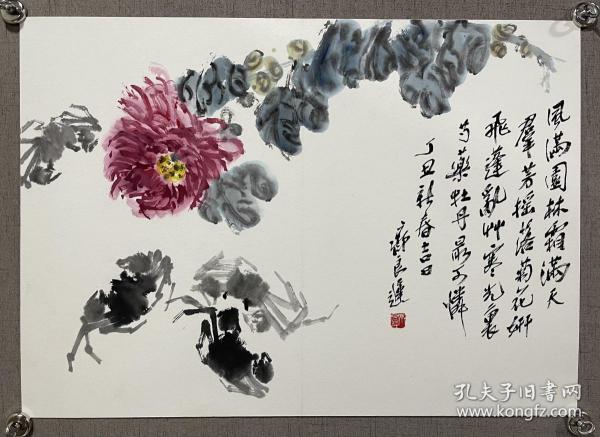 風滿園林霜滿天
羣芳摇落菊花妍
飛蓬亂艸寒光裏
芍藥牡丹最可憐
丁丑新春吉日
良遲
孔夫子旧书网
www.kongfz.com